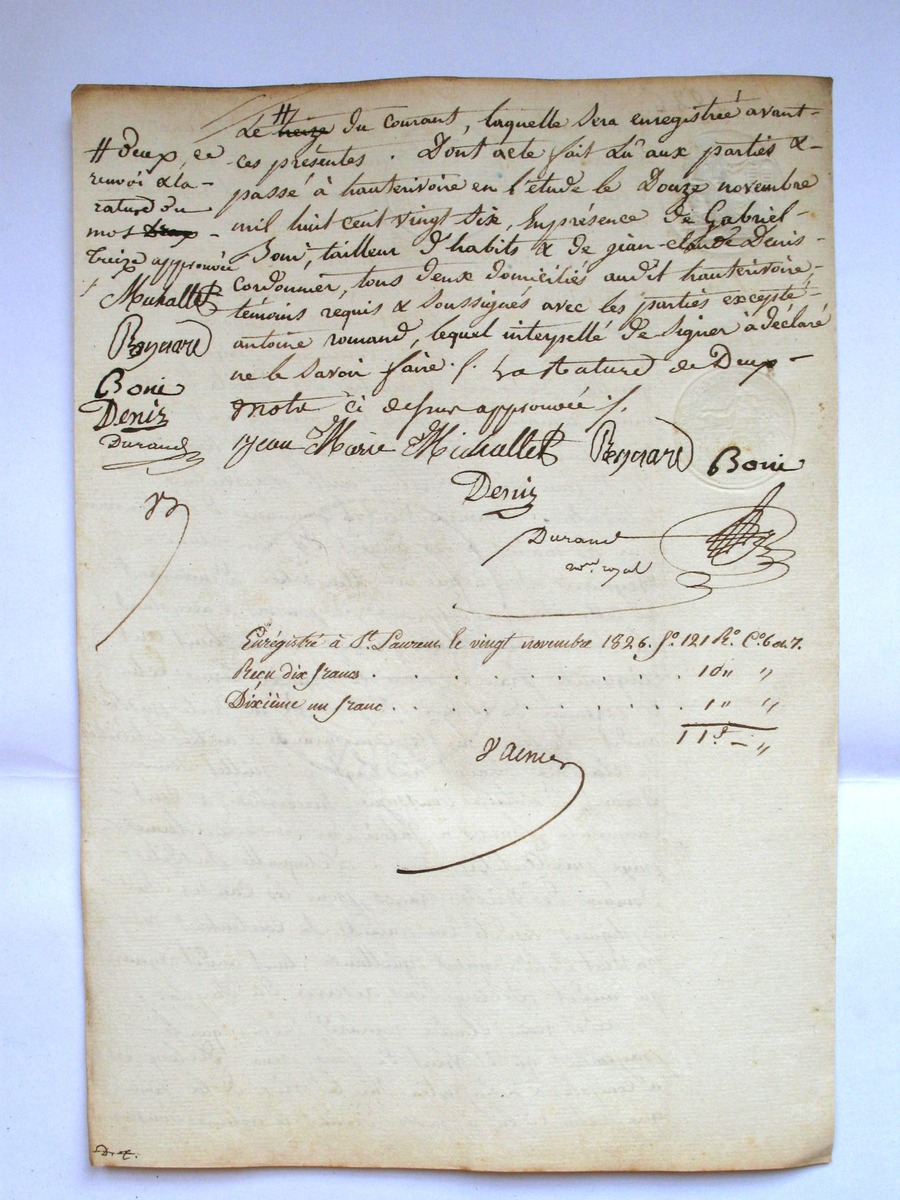 # deux, ce
renvoi & la
rature du
mot deux
treize approuvée
Michallet
Reynard
Boni
Deniz
Durand
Le # treize du courant, laquelle sera enregistrée avant-
ces présentes. Dont acte fait lû aux parties &
passé à hauterivoire en l'étude le Douze novembre
mil huit cent vingt six, En présence de Gabriel-
Boni, tailleur d'habits & de jean-claude Denis-
Cordonnier, tous deux domiciliés audit hauterivoire,
témoins requis & Soussignés avec les parties excepté-
antoine romand, lequel interpellé de signer à déclaré
ne le Savoir faire ./. La Rature de Deux-
mots ci dessus approuvée ./.
Jean Marie Michallet Reynard Boni
Deniz
Durand
nore royal
Enrégistré à St. Laurent le vingt novembre 1826. fo. 121 Ro. Co. 6 et 7.
Reçu dix francs . . . . . . . . 10 " "
Dixième un franc . . . . . . . . 1 " "
11 f – "